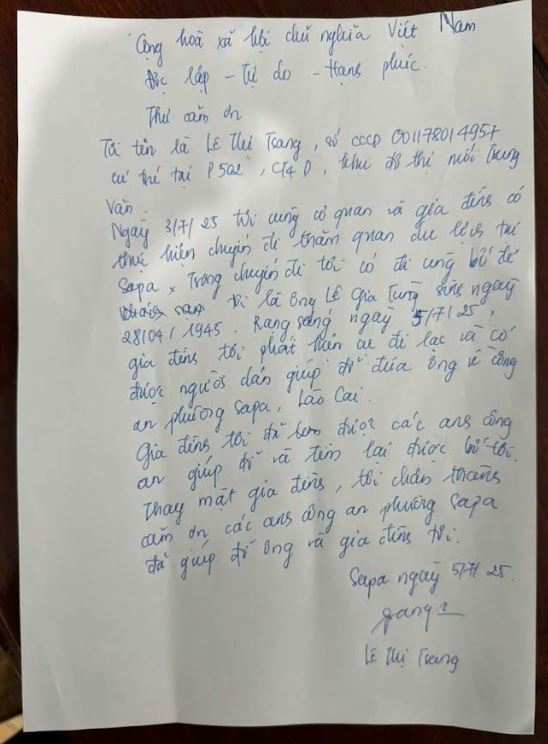 Cộng hoà xã hội chủ nghĩa Việt Nam
Độc lập - Tự do - Hạnh phúc.
Thư cảm ơn
Tôi tên là Lê Thị Trang, số CCCD 001178014957
cư trú tại P502, CT4D, khu đô thị mới Trung
Văn.
Ngày 3/7/25 tôi cùng cơ quan và gia đình có
thực hiện chuyến đi thăm quan du lịch tại
Sapa. Trong chuyến đi tôi có đi cùng bố đẻ
tôi là ông Lê Gia Tùng sinh ngày
28/04/1945. Rạng sáng ngày 5/7/25,
gia đình tôi phát hiện cụ đi lạc và có
được người dân giúp đỡ đưa ông về công
an phường Sapa, Lào Cai.
Gia đình tôi đã được các anh công
an giúp đỡ và tìm lại được bố tôi.
Thay mặt gia đình, tôi chân thành
cảm ơn các anh công an phường Sapa
đã giúp đỡ ông và gia đình tôi.
Sapa ngày 5/7/25.
Lê Thị Trang